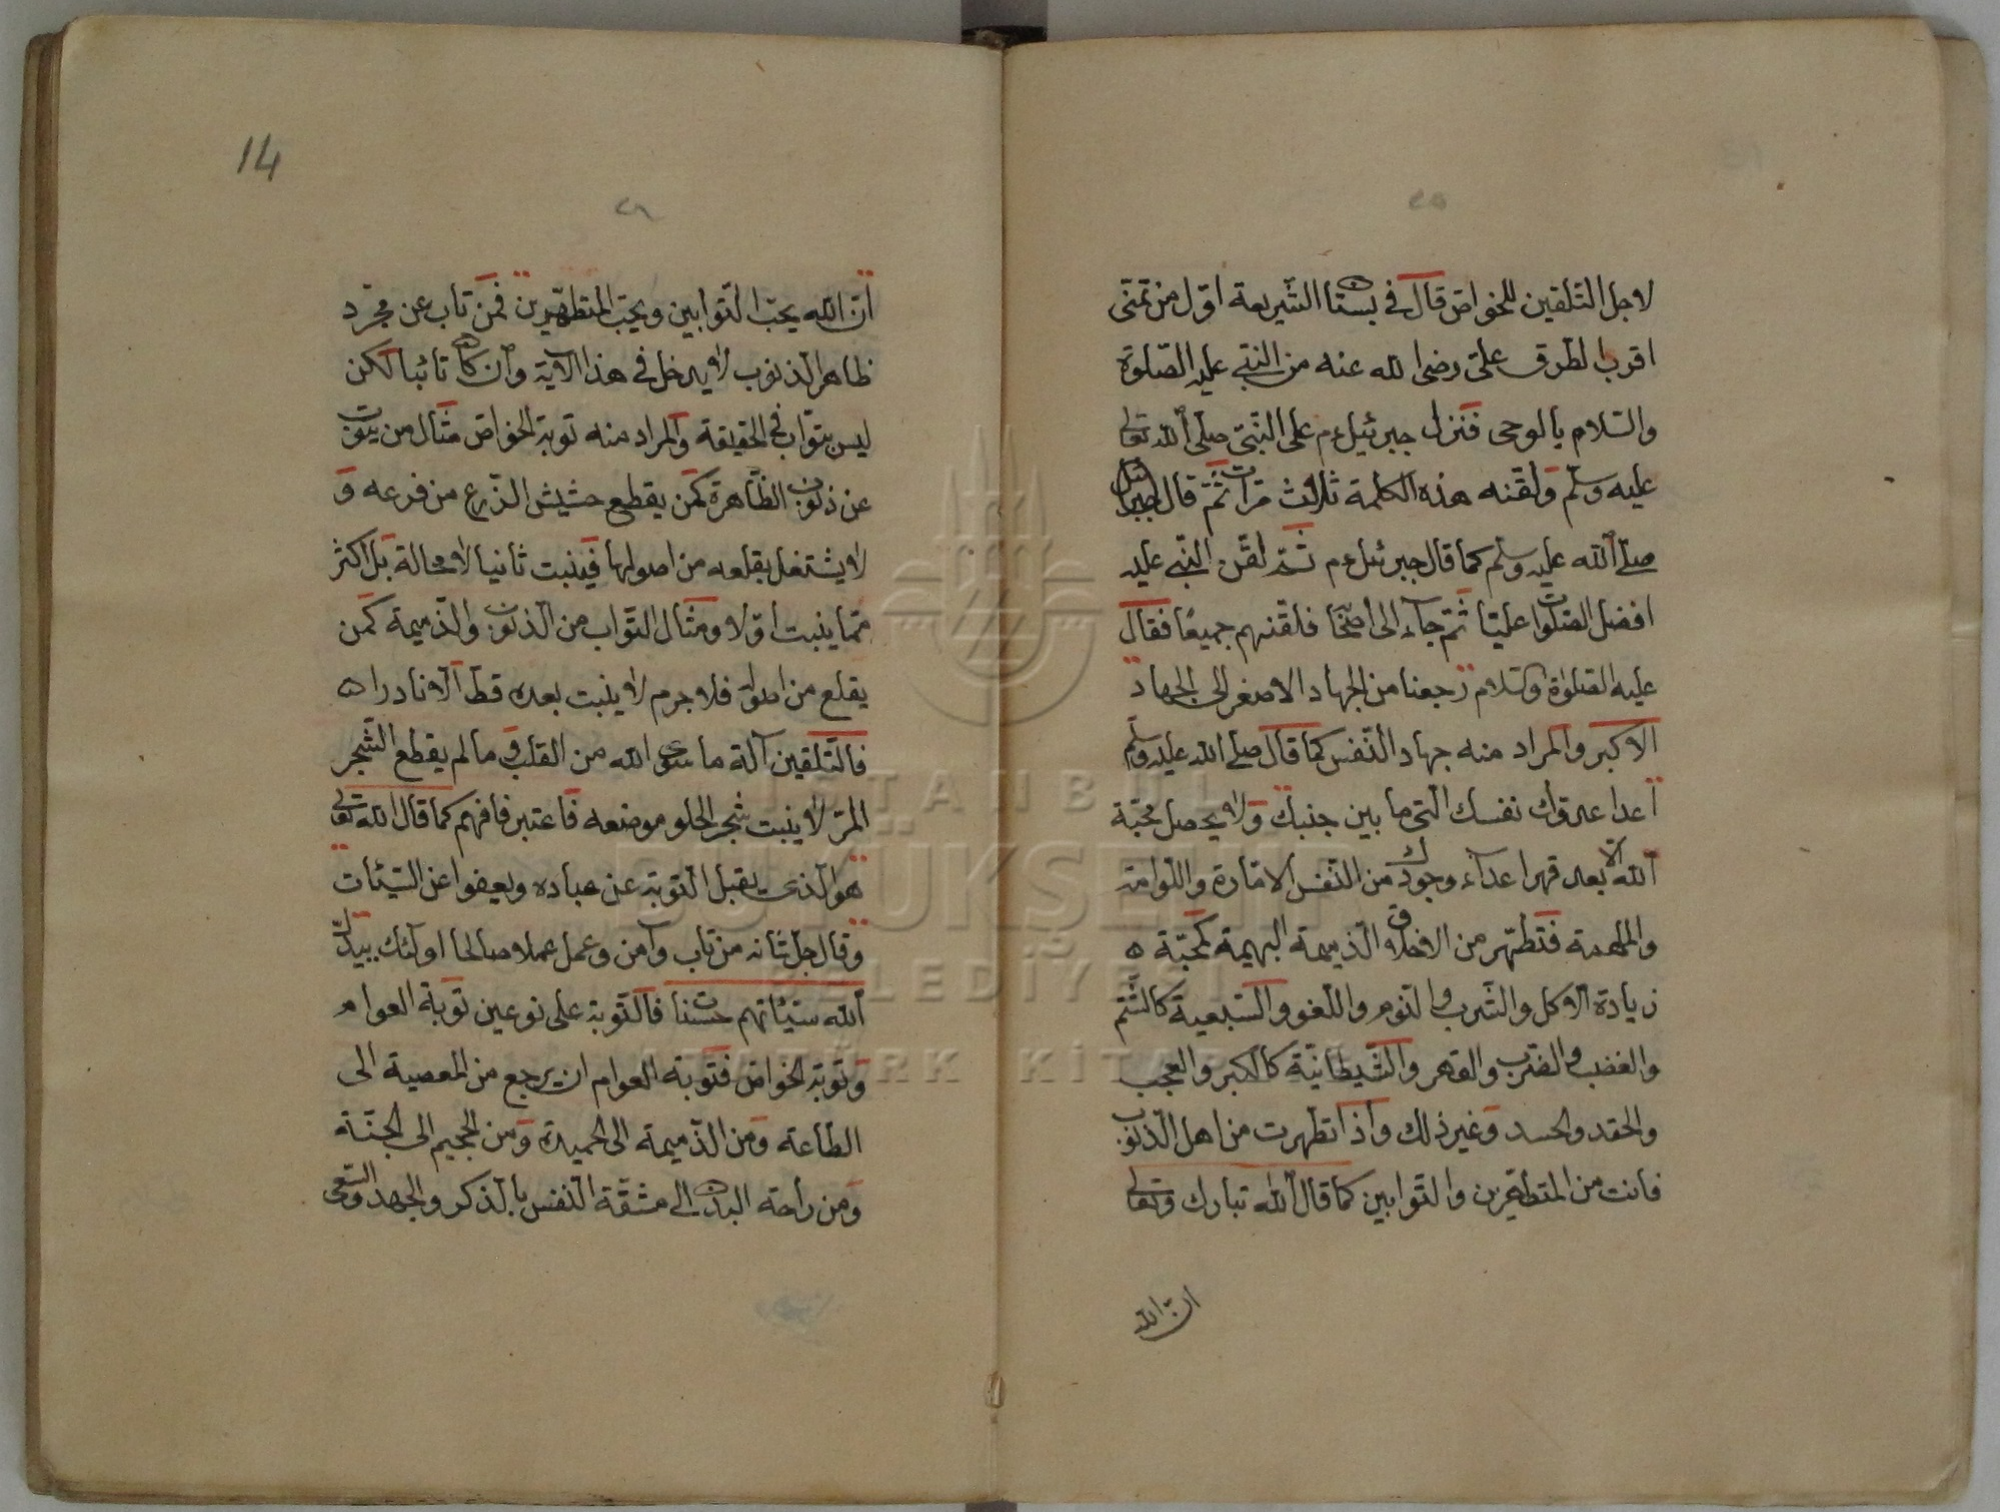 ٢٥
لاجل التلقين للخواص قال في بستان الشريعة اول من تمنى
اقرب الطرق على رضى الله عنه من النبي عليه الصلوة
والسلام بالوحى فنزل جبرئيل ءم على النبي صلى الله تعالى
عليه وسلم ولقنه هذه الكلمة ثلاث مرات ثم قال جبرائيل
صلى الله عليه وسلم كما قال جبرئيل ءم ثم لقن النبي عليه
افضل الصلوات عليا ثم جاء الى اصحابه فلقنهم جميعا فقال
عليه الصلوة والسلام رجعنا من الجهاد الاصغر الى الجهاد
الاكبر والمراد منه جهاد النفس كما قال صلى الله عليه وسلم
اعدا عدوك نفسك التى ما بين جنبيك ولا يحصل محبة
الله الا بعد قهر اعداء وجودك من النفس الامارة واللوامة
والملهمة فتطهر من الاخلاق الذميمة البهيمة كمحبة ه
زيادة الاكل والشرب والنوم واللغو والسبعية كالشتم
والغضب والضرب والقهر والشيطانية كالكبر والعجب
والحقد والحسد وغير ذلك واذا تطهرت من اهل الذنوب
فانت من المتطهرين والتوابين كما قال الله تبارك وتعالى
ان الله
14
٢٦
ان الله يحب التوابين ويحب المتطهرين فمن تاب عن مجرد
ظاهر الذنوب لا يدخل في هذا الآية وان كان تائبا لكن
ليس بتواب في الحقيقة والمراد منه توبة الخواص مثال من يتوب
عن ذنوب الظاهرة كمن يقطع حشيش الزرع من فرعه و
لا يشتغل بقلعه من اصولها فينبت ثانيا لا محالة بل اكثر
مما ينبت اولا ومثال التواب من الذنوب والذميمة كمن
يقلع من اصوله فلا جرم لا ينبت بعده قط الا نادرا ه
فالتلقين آلة ما سوى الله من القلب وما لم يقطع الشجر
المر لا ينبت شجر الحلو موضعه فاعتبر فافهم كما قال الله تعالى
هو الذى يقبل التوبة عن عباده ويعفوا عن السيئات
وقال جل شانه من تاب وآمن وعمل عملا صالحا اولئك يبدل
الله سيئاتهم حسنات فالتوبة على نوعين توبة العوام
وتوبة الخواص فتوبة العوام ان يرجع من المعصية الى
الطاعة ومن الذميمة الى الحميدة ومن الجحيم الى الجنة
ومن راحة البدن الى مشقة النفس بالذكر والجهد والسعى
İSTANBUL
BÜYÜKŞEHİR
BELEDİYESİ
ATATÜRK KİTAPLIĞI